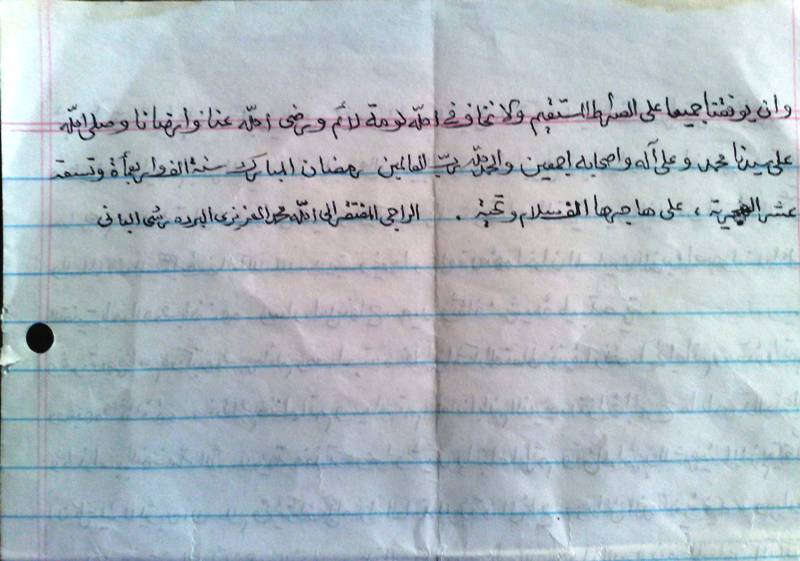 وان يوفقنا جميعا على الصراط المستقيم ولا نخاف في الله لومة لائم ويرضى الله عنا وارضانا وصلى الله
على سيدنا محمد وعلى آله واصحابه اجمعين والحمد لله رب العالمين رمضان المبارك سنة الف واربعمأة وتسعة
عشر الهجرية ، على هاجرها الف سلام وتحية . الراجي المفتقر الى الله محمد العزيزي